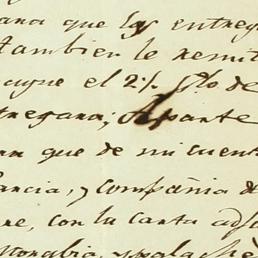 ana que las entreg
tambien le remit
ague el 2% Glo de
tregara; Aparte
an que de mi cuent
ancia, y compañia d
re, con la carta adj